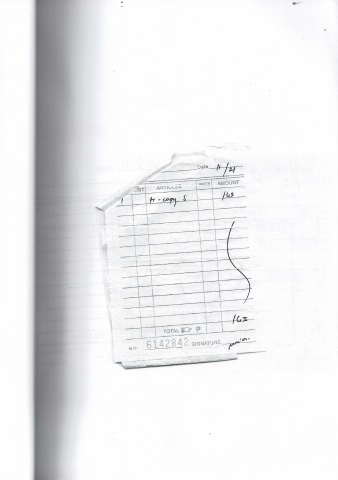 Date 11/21
ARTICLES RATE AMOUNT
1 H-copy 5 165
165
TOTAL
No. 6142842 SIGNATURE